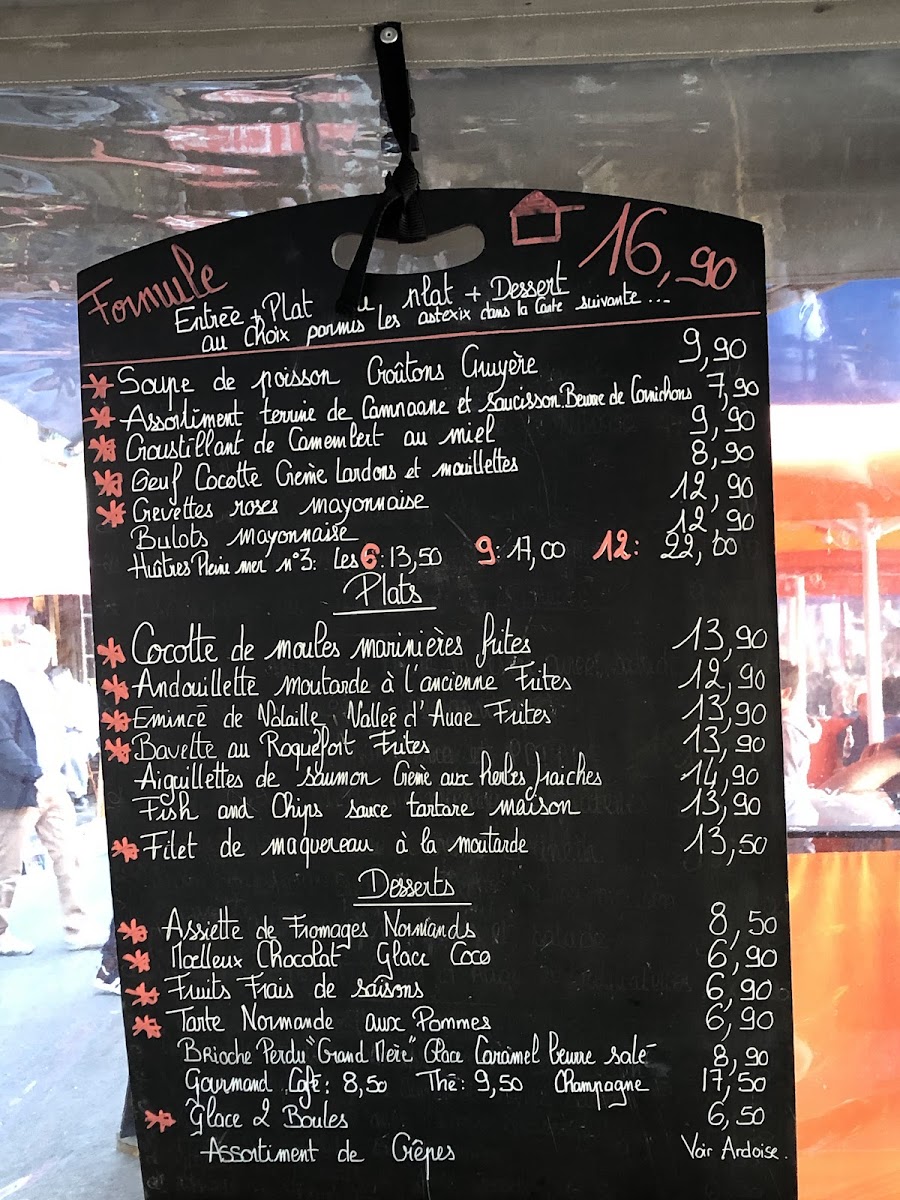 Formule 16,90
Entrée + Plat ou Plat + Dessert
au Choix parmis les asterix dans la Carte suivante ...
* Soupe de poisson Croûtons Gruyère 9,90
* Assortiment terrine de Campagne et saucisson. Beurre de Cornichons 7,90
* Croustillant de Camembert au miel 9,90
* Oeuf Cocotte Crème lardons et mouillettes 8,90
* Crevettes roses mayonnaise 12,90
Bulots mayonnaise 12,90
Huîtres Pleine mer n°3: Les 6: 13,50 9: 17,00 12: 22,00
Plats
* Cocotte de moules marinières frites 13,90
* Andouillette moutarde à l'ancienne Frites 12,90
* Emincé de Volaille Vallée d'Auge Frites 13,90
* Bavette au Roquefort Frites 13,90
Aiguillettes de saumon Crème aux herbes fraiches 14,90
Fish and Chips sauce tartare maison 13,90
* Filet de maquereau à la moutarde 13,50
Desserts
* Assiette de Fromages Normands 8,50
* Moelleux Chocolat Glace Coco 6,90
* Fruits Frais de saisons 6,90
* Tarte Normande aux Pommes 6,90
Brioche Perdu "Grand Mère" Glace Caramel beurre salé 8,90
Gourmand Café: 8,50 Thé: 9,50 Champagne 17,50
* Glace 2 Boules 6,50
Assortiment de Crêpes Voir Ardoise.